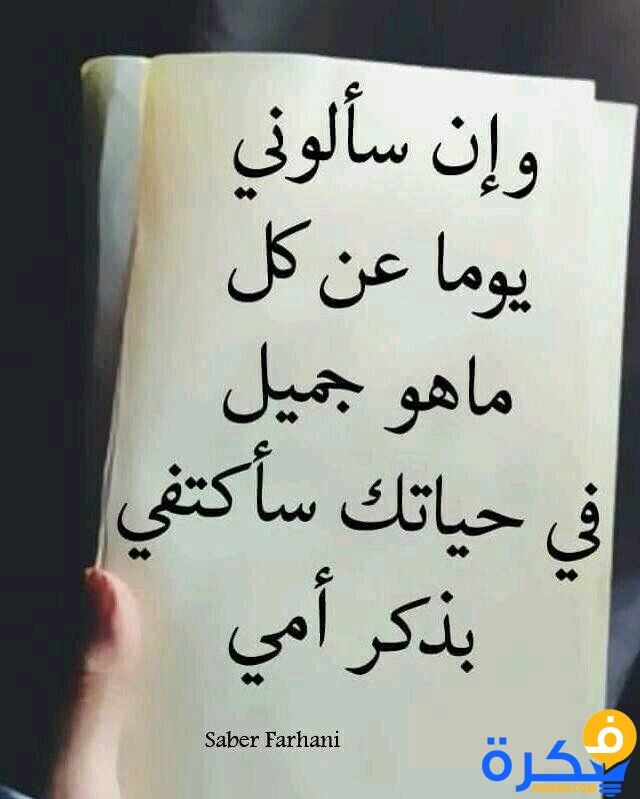 وإن سألوني
يوما عن كل
ماهو جميل
في حياتك سأكتفي
بذكر أمي
Saber Farhani
فكرة